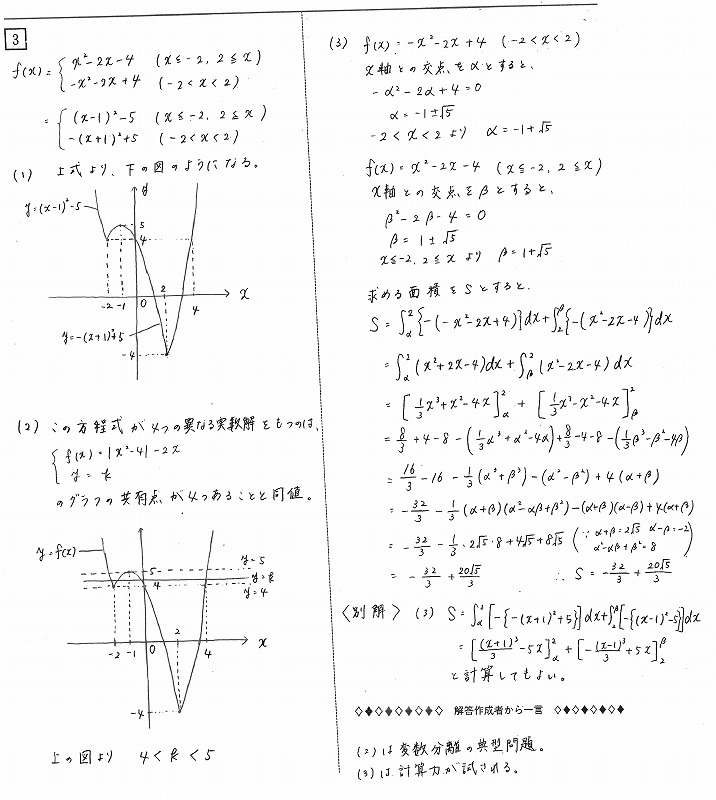 3
f(x) = { x²-2x-4 (x≦-2, 2≦x)
-x²-2x+4 (-2<x<2)
= { (x-1)²-5 (x≦-2, 2≦x)
-(x+1)²+5 (-2<x<2)
(1) 上式より、下の図のようになる。
y
y=(x-1)²-5
5
4
-2 -1 0 2 4 x
y=-(x+1)²+5
-4
(2) この方程式が4つの異なる実数解をもつのは、
{ f(x)=|x²-4|-2x
y = k
のグラフの共有点が4つあることと同値。
y=f(x)
5
4
y=5
y=k
y=4
-2 -1 0 2 4 x
-4
上の図より 4<k<5
(3) f(x)=-x²-2x+4 (-2<x<2)
x軸との交点をαとすると、
-α²-2α+4=0
α=-1±√5
-2<x<2より α=-1+√5
f(x)=x²-2x-4 (x≦-2, 2≦x)
x軸との交点をβとすると、
β²-2β-4=0
β=1±√5
x≦-2, 2≦xより β=1+√5
求める面積をSとすると、
S=∫_α^2{-(-x²-2x+4)}dx+∫_2^β{-(x²-2x-4)}dx
=∫_α^2(x²+2x-4)dx+∫_β^2(x²-2x-4)dx
=[1/3x³+x²-4x]_α^2+[1/3x³-x²-4x]_β^2
=8/3+4-8-(1/3α³+α²-4α)+8/3-4-8-(1/3β³-β²-4β)
=16/3-16-1/3(α³+β³)-(α²-β²)+4(α+β)
=-32/3-1/3(α+β)(α²-αβ+β²)-(α+β)(α-β)+4(α+β)
=-32/3-1/3・2√5・8+4√5+8√5 (∵α+β=2√5 α-β=-2
α²-αβ+β²=8)
=-32/3+20√5/3 ∴S=-32/3+20√5/3
〈別解〉(3) S=∫_α^2[-{-(x+1)²+5}]dx+∫_2^β[-{(x-1)²-5}]dx
=[(x+1)³/3-5x]_α^2+[-(x-1)³/3+5x]_2^β
と計算してもよい。
◇◆◇◆◇◆◇◆◇ 解答作成者から一言 ◇◆◇◆◇◆◇◆
(2)は変数分離の典型問題。
(3)は計算力が試される。